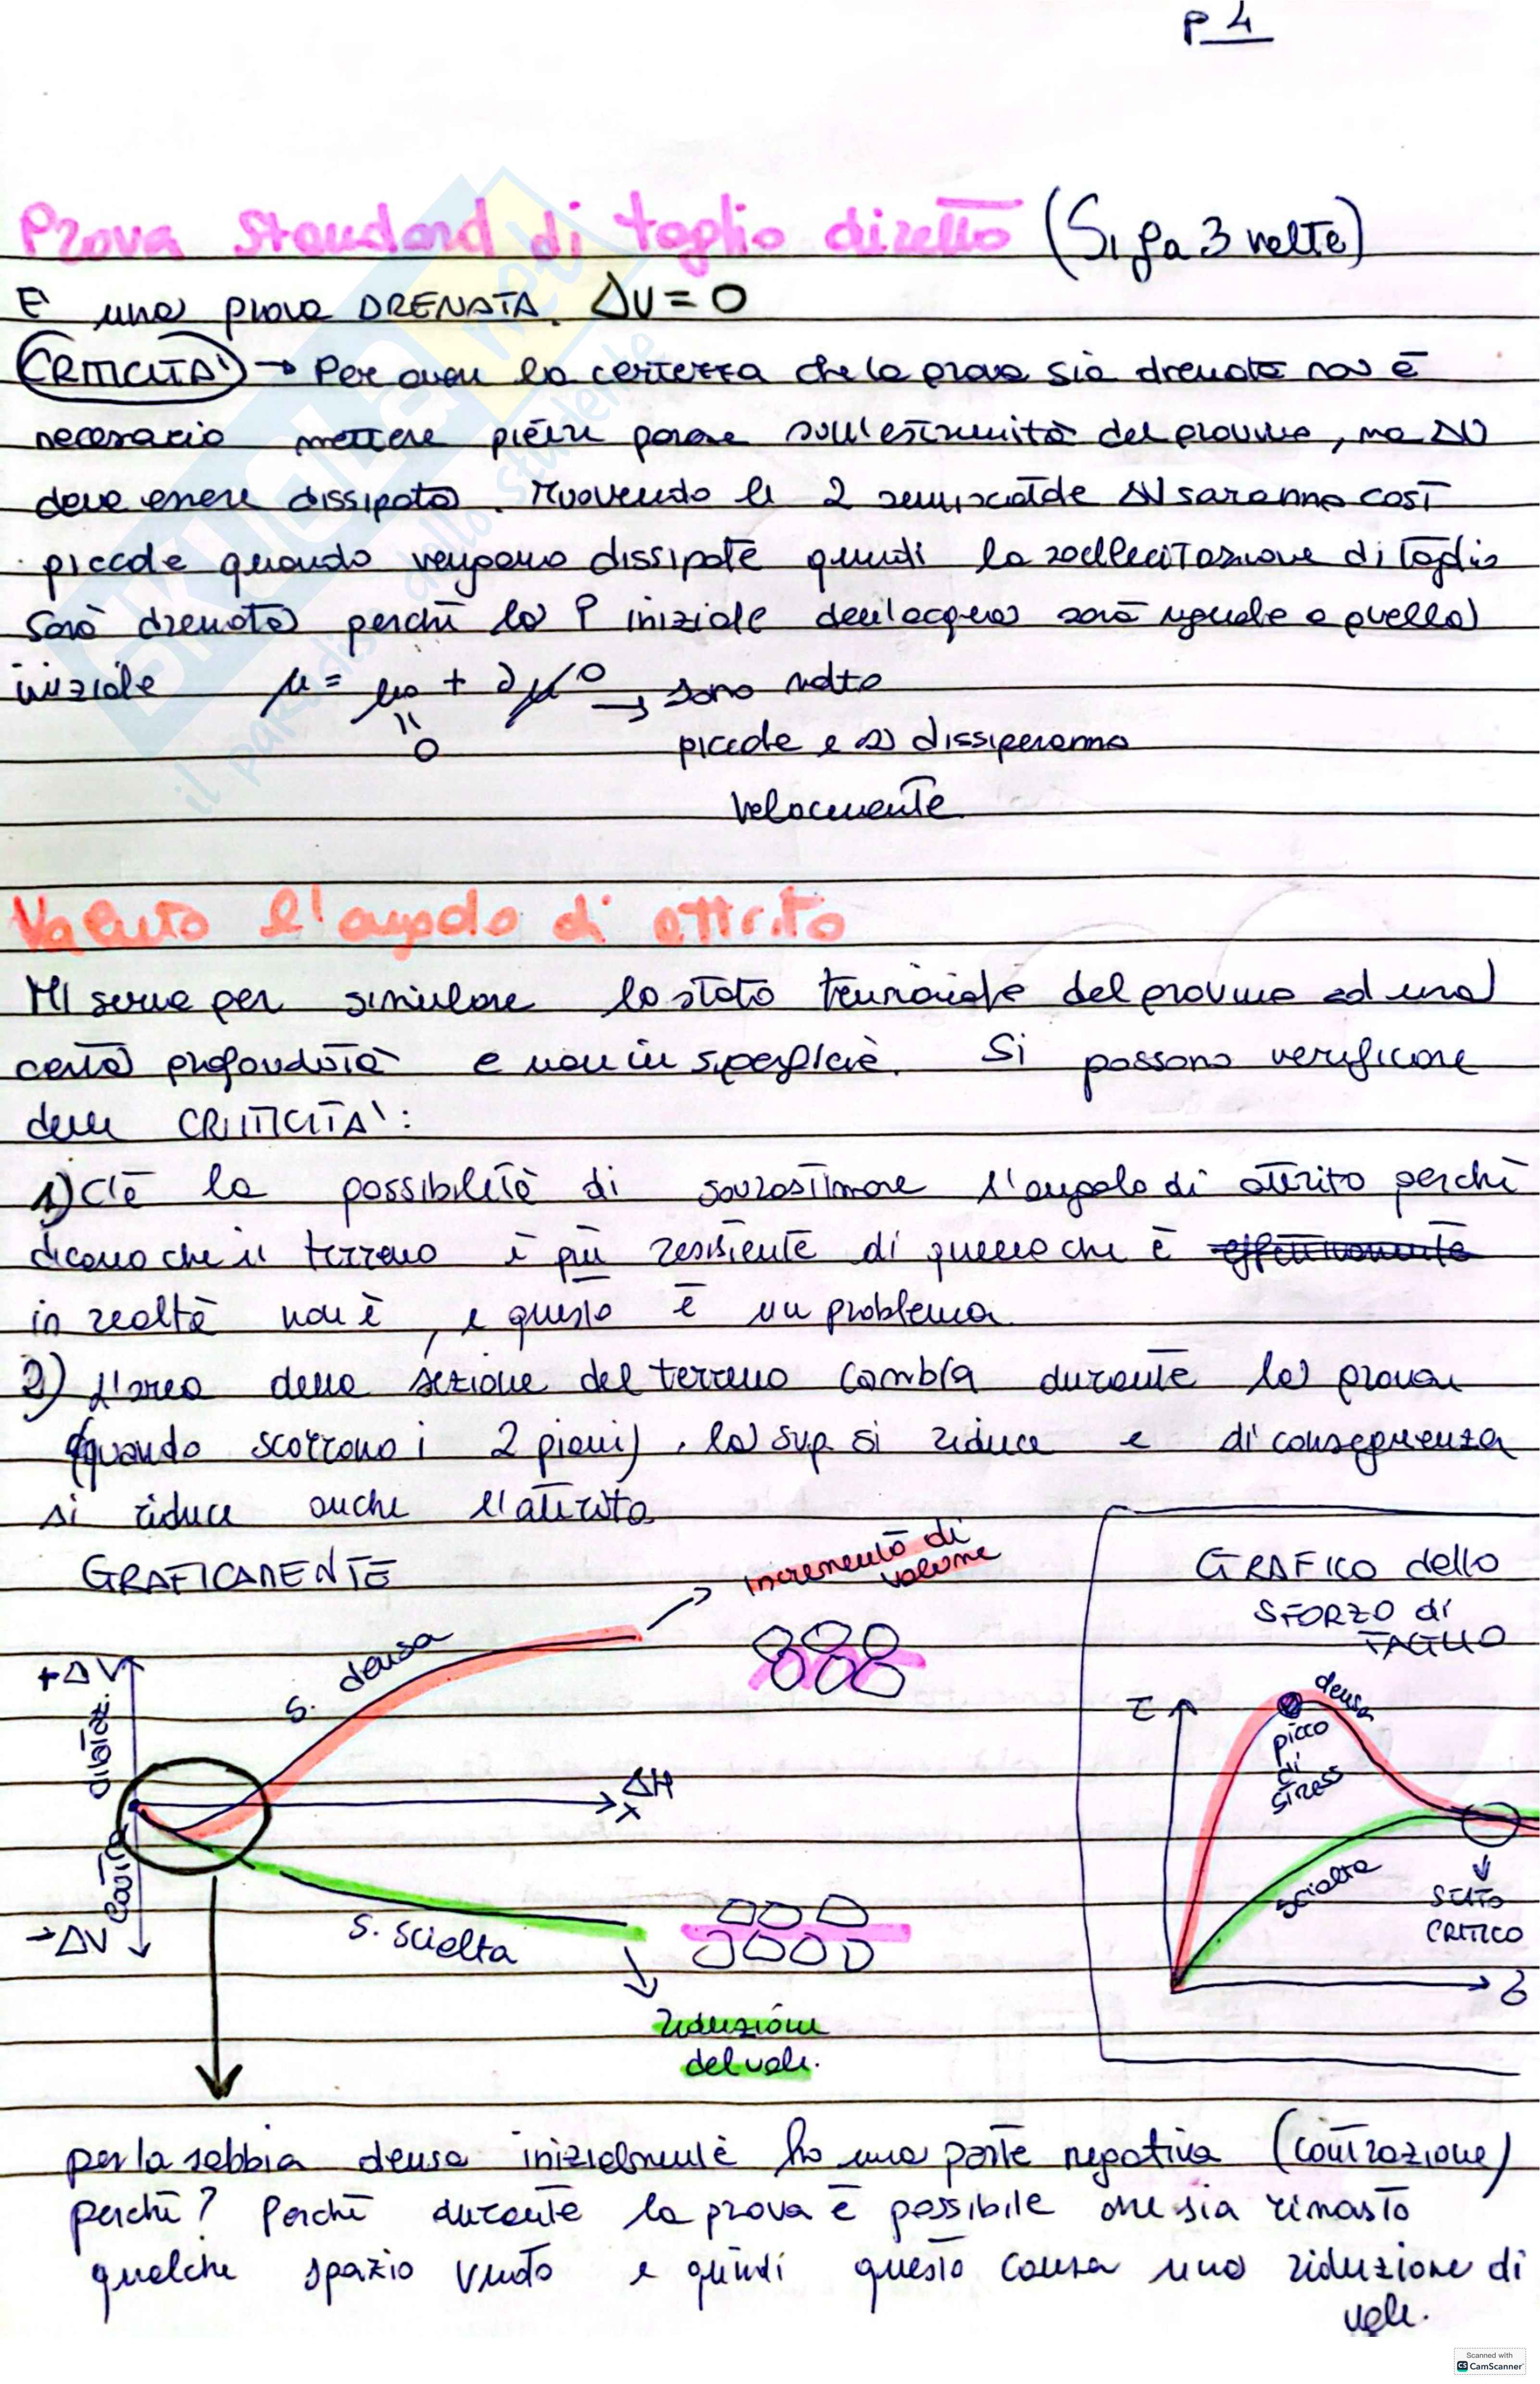 P 4
Prova Standard di taglio diretto (Si fa 3 volte)
E una prova DRENATA. ΔU = 0
CRITICITA' → Per avere la certezza che la prova sia drenata non è
necessario mettere pietre porose sull'estremità del provino, ma ΔU
deve essere dissipata. Muovendo le 2 semiscatole ΔU saranno così
piccole quando vengono dissipate quindi la sollecitazione di taglio
sarà drenata perchè la P iniziale dell'acqua sarà uguale a quella
iniziale μ = μo + ∂μ 0 → sono molto
= 0
piccole e si dissiperanno
velocemente
Valuto l'angolo di attrito
Mi serve per simulare lo stato tensionale del provino ad una
certa profondità e non in superficie. Si possono verificare
delle CRITICITA':
1) C'è la possibilità di sovrastimare l'angolo di attrito perchè
dicono che il terreno è più resistente di quello che è effettivamente
in realtà non è, e questo è un problema
2) L'area della sezione del terreno cambia durante la prova
(quando scorrono i 2 piani), la sup si riduce e di conseguenza
si riduce anche l'attrito
GRAFICAMENTE
incremento di
volume
S. densa
+ΔV
dilataz.
ΔH
x
contraz.
-ΔV
S. sciolta
riduzione
del vol.
GRAFICO dello
SFORZO di
TAGLIO
τ
densa
picco
di
stress
sciolta
STATO
CRITICO
δ
per la sabbia densa inizialmente ho una parte negativa (contrazione)
perchè? Perchè durante la prova è possibile che sia rimasto
qualche spazio vuoto e quindi questo causa una riduzione di
vol.
SKUOLA.net
il paradiso dello studente
Scanned with
CS CamScanner